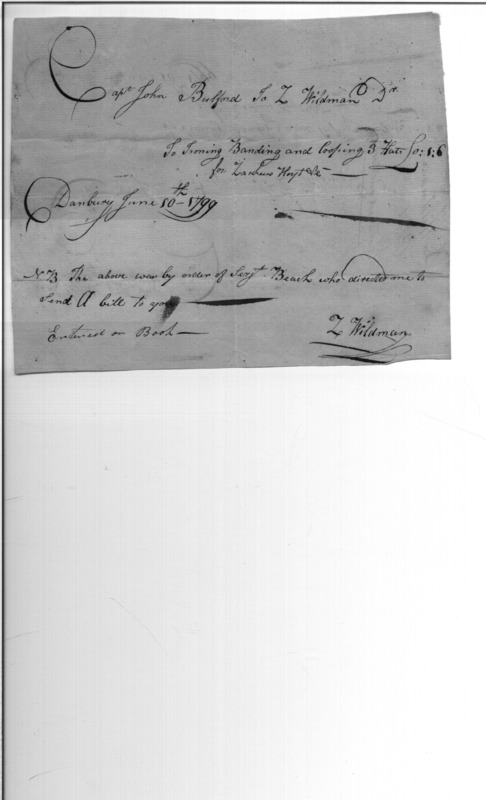 Capt John Bulford To Z Wildman Dr
To Ironing Banding and Looping 3 Hats £0:1:6
for Hoyt &c
Danbury June 10th 1799
NB The above was by order of Serjt Beach who directed me to
Send A bill to you
Entered on Book
Z Wildman